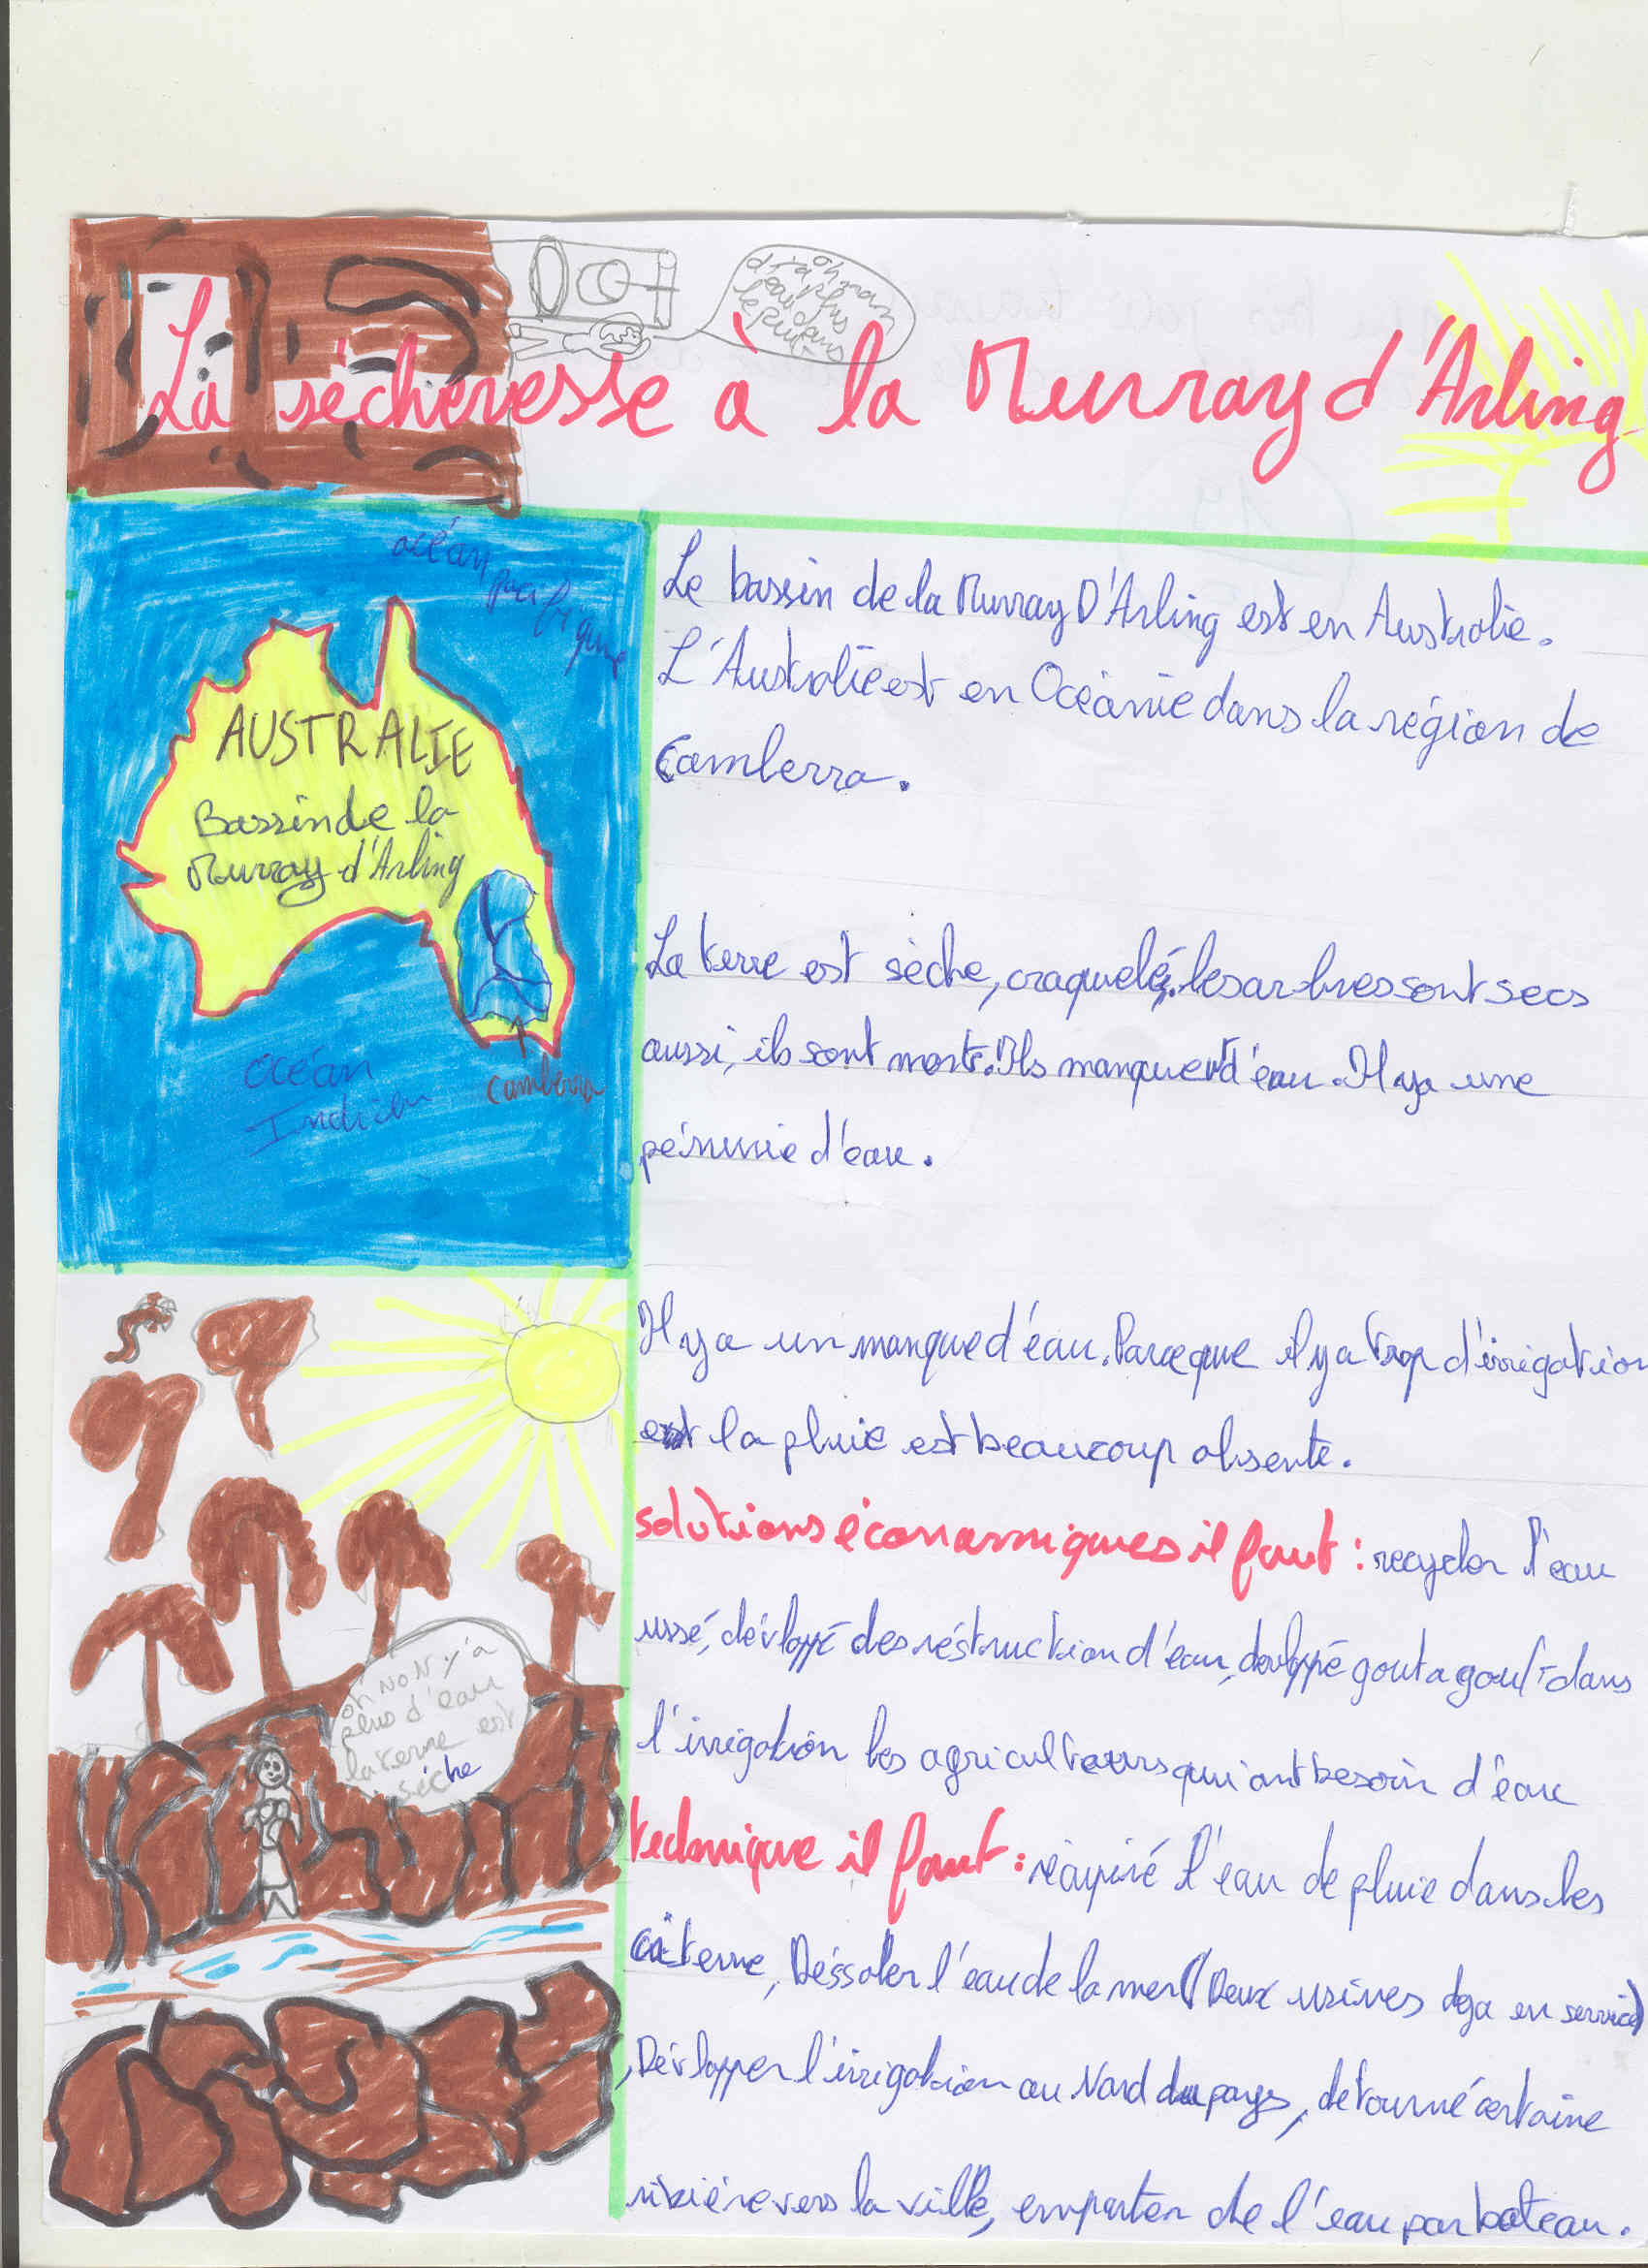 oh non
d'ya plus
d'eau dans
le puit
La sécheresse à la Murray d'Arling
océan pacifique
AUSTRALIE
Bassin de la
Murray d'Arling
océan
Indien
camberra
Le bassin de la Murray D'Arling est en Australie.
L'Australie est en Océanie dans la région de
Camberra.
La terre est sèche, craquelé, les arbres sont secs
aussi, ils sont morts. Ils manquent d'eau. Il y a une
pénurie d'eau.
Il y a un manque d'eau. Parce que il y a trop d'irrigation
et la pluie est beaucoup absente.
solutions économiques il faut : recycler l'eau
ussé, dévloppé des réstruction d'eau, devloppé gout a gout dans
l'irrigation les agriculteurs qui ont besoin d'eau
technique il faut : récupiré l'eau de pluie dans les
citerne, Déssaler l'eau de la mer (Deux usines deja en service)
, Dévlopper l'irrigation au Nord du pays, detourné certaine
rivière vers la ville, emporter de l'eau par bateau.
oh NON y'a
plus d'eau
la terre est
sèche